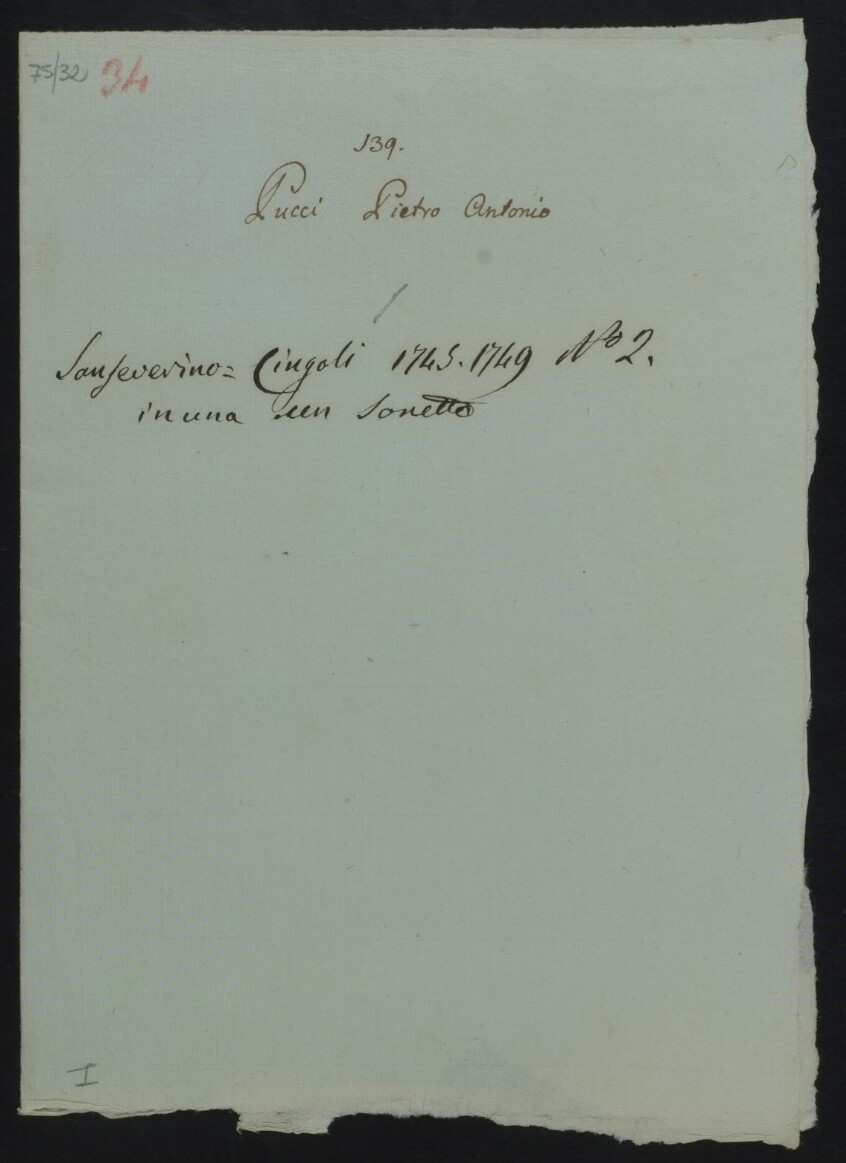 75/32 34
139.
Pucci Pietro Antonio
Sanseverino= Cingoli 1745.1749 No 2.
in una un Sonetto
I